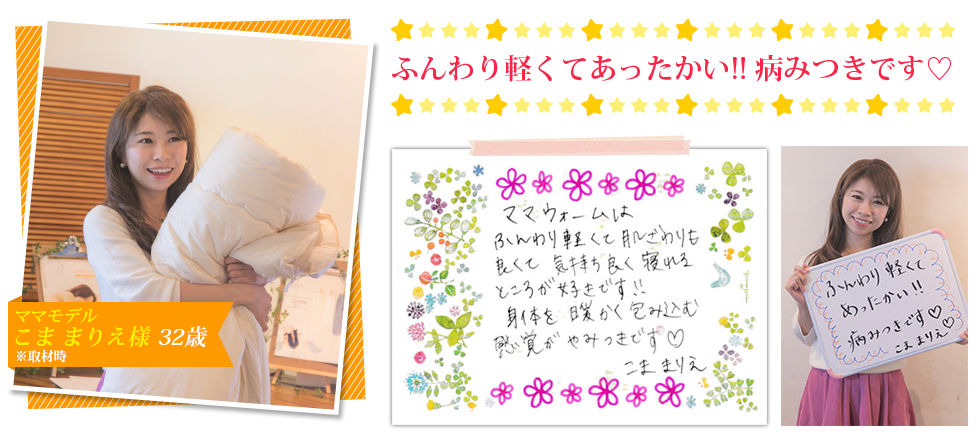 ふんわり軽くてあったかい!! 病みつきです♡
ママモデル
こま まりえ様 32歳
※取材時
ママウォームは
ふんわり軽くて肌ざわりも
良くて 気持ち良く寝れる
ところが好きです!!
身体を暖かく包み込む
感覚がやみつきです♡
こま まりえ
ふんわり軽くて
あったかい!!
病みつきです♡
こま まりえ